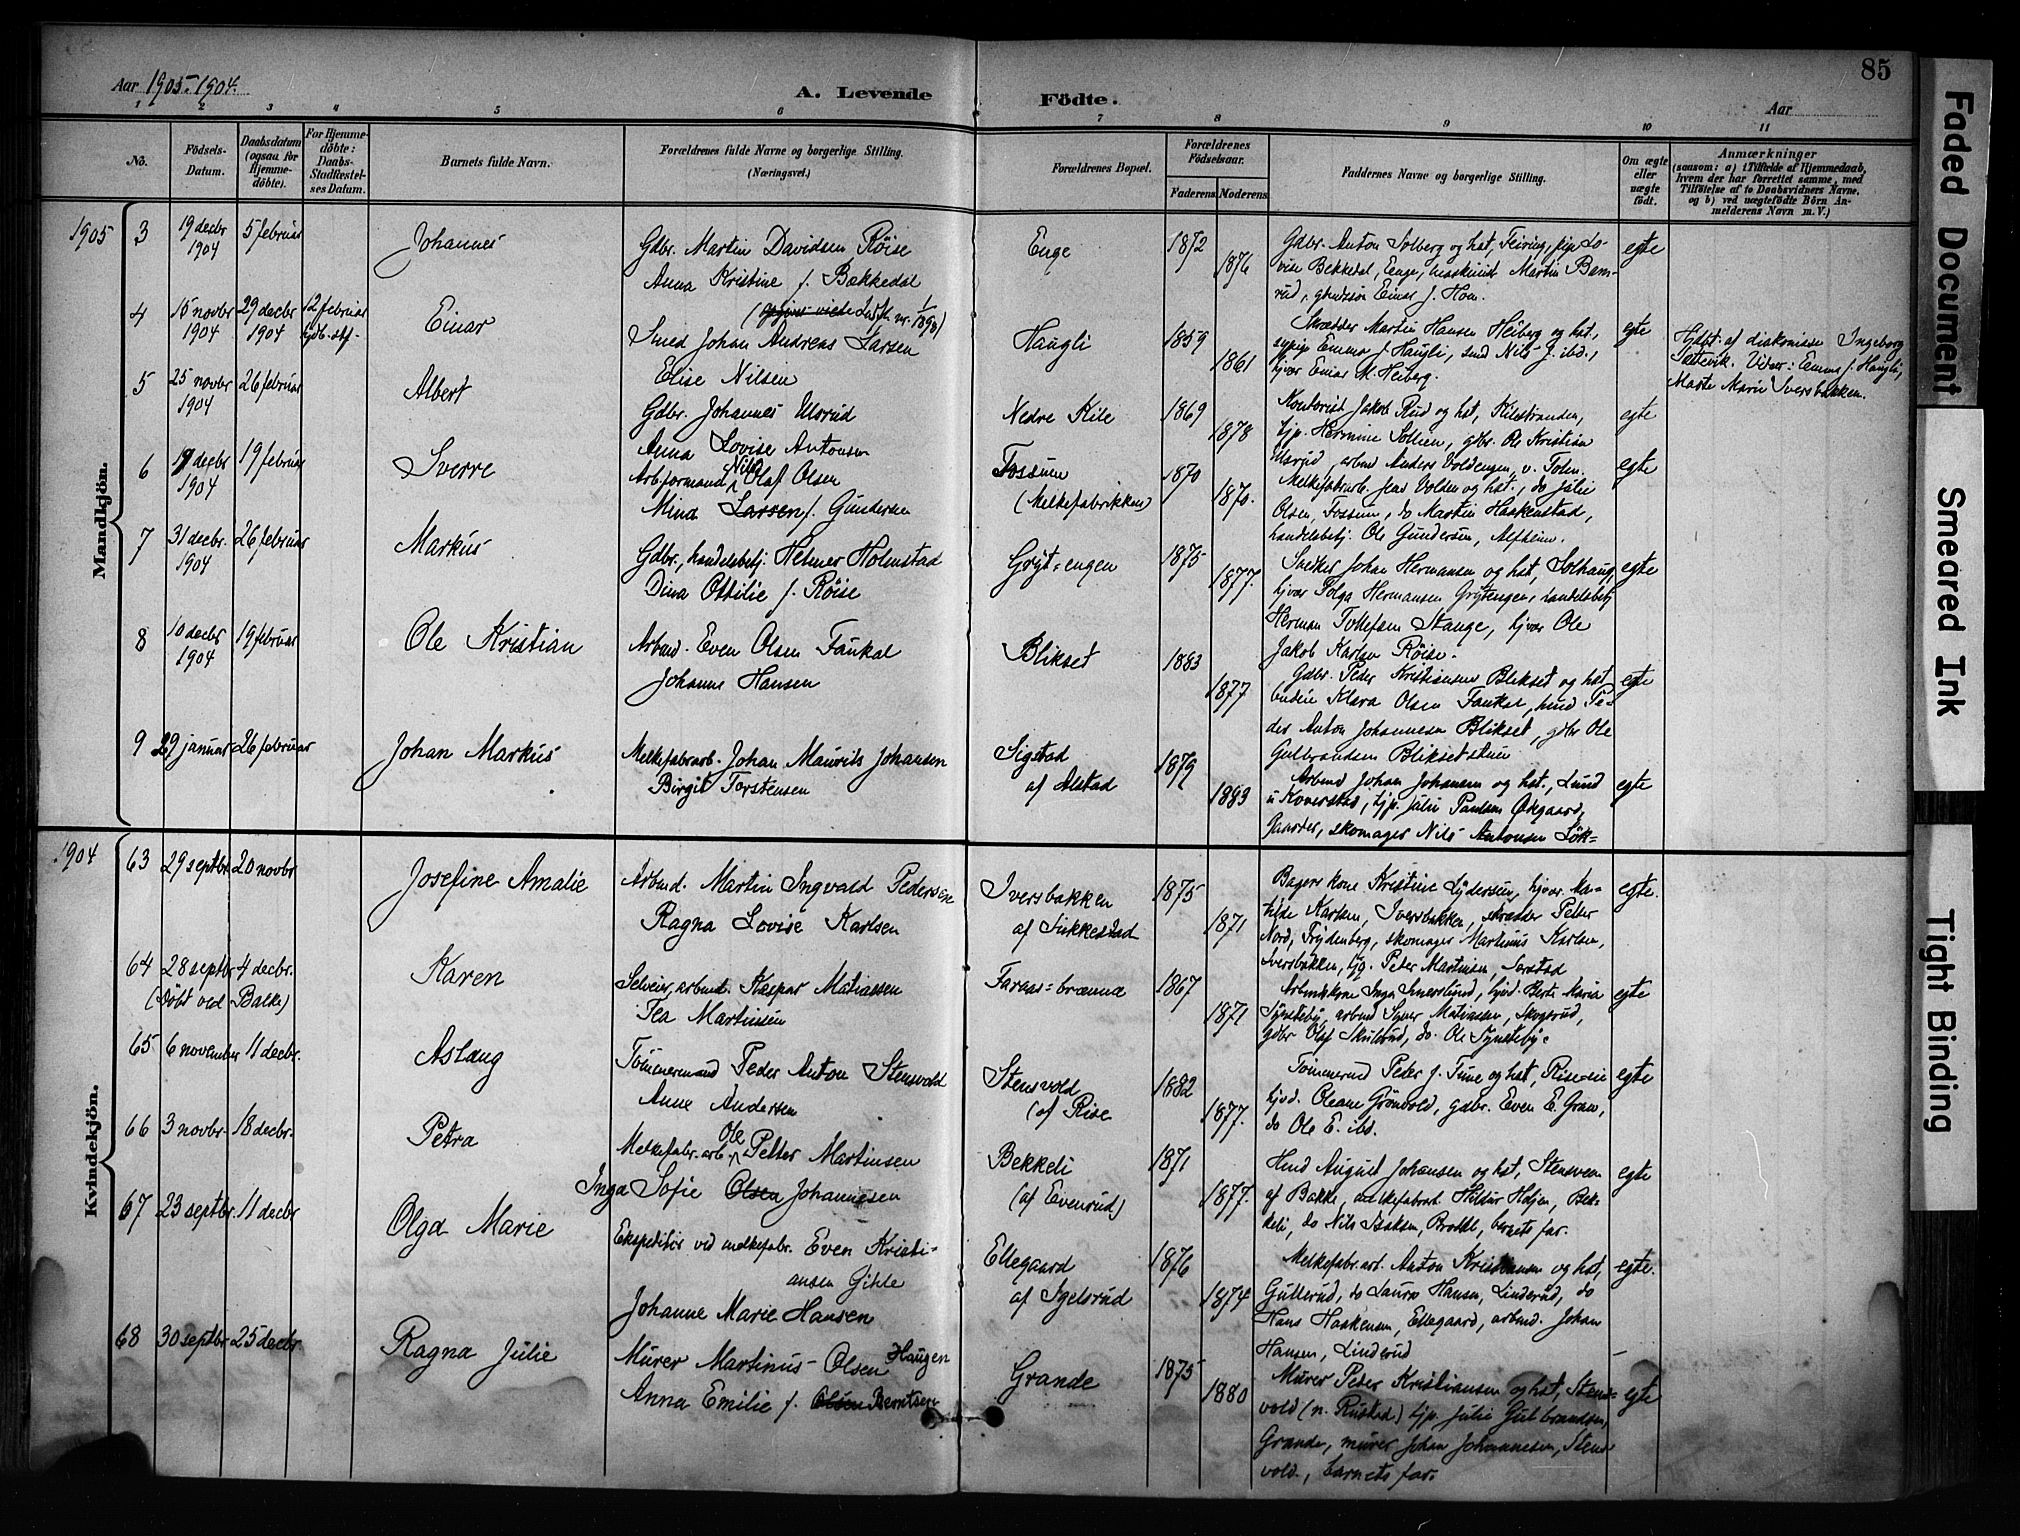 85
Aar 1905-1904.
A. Levende Födte.
Aar
1 2 3 4 5 6 7 8 9 10 11
No.
Födsels-Datum.
Daabsdatum (ogsaa for Hjemme-döbte).
For Hjemme-döbte: Daabs-Stadfæstel-ses Datum.
Barnets fulde Navn.
Forældrenes fulde Navne og borgerlige Stilling. (Næringsvei.)
Forældrenes Bopæl.
Forældrenes Födselsaar.
Faderens. Moderens.
Faddernes Navne og borgerlige Stilling.
Om ægte eller uægte födt.
Anmærkninger
(saasom: a) i Tilfælde af Hjemmedaab,
hvem der har forrettet samme, med
Tilföielse af to Daabsvidners Navne,
og b) ved uægtefödte Börn An-
melderens Navn m. V.)
Mandkjön.
1905 3 19 decbr 1904 5 februar Johannes
Gdbr. Martin Davidsen Røise
Anna Kristine f. Bækkedal
Enge 1872 1876
Gdbr. Anton Solberg og hst, Feiring, pige Lo-
vise Bekkedal, Enge, maskinist Martin
rud, Einar J. egte
4 15 novbr 1904 29 decbr 1904 12 februar Einar
Smed Johan Andreas Larsen
Elise Nilsen
Haugli 1859 1861
Skrædder Martin Hansen Heiberg og hst.,
sypige Emma J. Haugli, smd Nils J. ibd.,
Einar M. Heiberg. egte
Hjdbt. af diakonisse Ingeborg
Vidner: Emma J. Haugli,
Marte Marie Iversbakken.
5 25 novbr 1904 26 februar Albert
Gdbr. Johannes Ulsrud
Anna Lovise Antonsen
Nedre Kile 1869 1878
Kontorist Jakob Rud og hst, Kilestranden,
Hermine Sollien, gdbr. Ole Kristian
Ulsrud, arbmd Anders Voldengen, v. Toten. egte
6 17 decbr 1904 19 februar Sverre
Arb.formand Nils Olaf Olsen
Mina Larsen f. Gundersen
Fossum
(Melkefabrikken) 1870 1870.
Melkefabrarb. Jens Volden og hst., do Julie
Olsen, Fossum, do Martin Haakenstad,
handelsbetj. Ole Gundersen, egte
7 31 decbr. 1904 26 februar Markus
Gdbr., handelsbetj. Helmer Holmstad
Dina Ottilie f. Røise
Grytengen 1875 1877.
Snedker Johan Hermansen og hst, Solhaug,
Hermansen Grytengen, handelsbetj
Herman Tollefsen Stange, Ole
Jakob Karlsen Røise. egte
8 10 decbr 1904 19 februar Ole Kristian
Arbmd. Even Olsen Faukal
Johanne Hansen
Blikset 1883 1877
Gdbr. Peder Kristiansen Blikset og hst
Klara Olsen Faukal, Pe-
der Anton Johannesen Blikset, gdbr Ole
Gulbrandsen Bliksetstuen egte
9 29 januar 26 februar Johan Markus
Melkefabrarb. Johan Maurits Johansen
Birgit Torstensen
Sigstad
af Alstad 1879 1883
Arbmd Johan Johansen og hst., Lund
u Koverstad, tjp. Julie Paulsen Ødegaard,
skomager Nils Antonsen egte
Kvindekjön.
1904 63 29 septbr 20 novbr Josefine Amalie
Arbmd. Martin Ingvald Pedersen
Ragna Lovise Karlsen
Iversbakken 1875 1871
Bagers kone Kristine Lydersen, Ma-
tilde Karlsen, Iversbakken, skrædder Peter
Nord, Frydenberg, skomager Martinus Karlsen,
Iversbakken, Peter Martinsen, egte.
64 28 septbr 4 decbr. Karen
(Døbt ved Balke)
arbmd. Kaspar Matiassen
Tea Martinsen
1867 1871
Arbmdskone Inga Berte Maria
arbmd Syver Matiassen,
gdbr Olaf do. Ole egte
65 6 november 11 decbr. Aslaug
Tømmermand Peder Anton Stensvold
Anne Andersen
Stensvold
(af Rise 1882 1877.
Tømmermd Peder J. og hst,
Oleane Grønvold, gdbr. Even E.
do Ole E. ibd. egte
66 3 novbr. 18 decbr. Petra
Melkefabr. arb. Ole Petter Martinsen
Inga Sofie Olsen Johannesen
Bekkeli
(af Evenrud) 1871 1877.
August Johansen og hst, Stensveen
af Bakke, melkefabrarb Bek-
keli, do Nils Isaksen, barnets far. egte
67 23 septbr. 11 decbr Olga Marie
Ekspeditør ved melkefabr. Even Kristi-
ansen Gihle
Johanne Marie Hansen
Ellegaard
af Igelsrud 1876 1874
Melkefabr.arb. Anton Kristiansen og hst,
Gullerud, do Laura Hansen, Linderud, do
Hans Haakensen, Ellegaard, arbmd. Johan
Hansen, Linderud egte.
68 30 septbr. 25 decbr Ragna Julie
Murer Martinus Olsen Haugen
Anna Emilie f. Olsen Berntsen
Grande 1875 1880
Murer Peder Kristiansen og hst, Stens-
vold (n. Rustad) tjp. Julie Gulbrandsen,
Grande, murer Johan Johannesen, Stens-
vold, barnets far. egte
Faded Document
Smeared Ink
Tight Binding